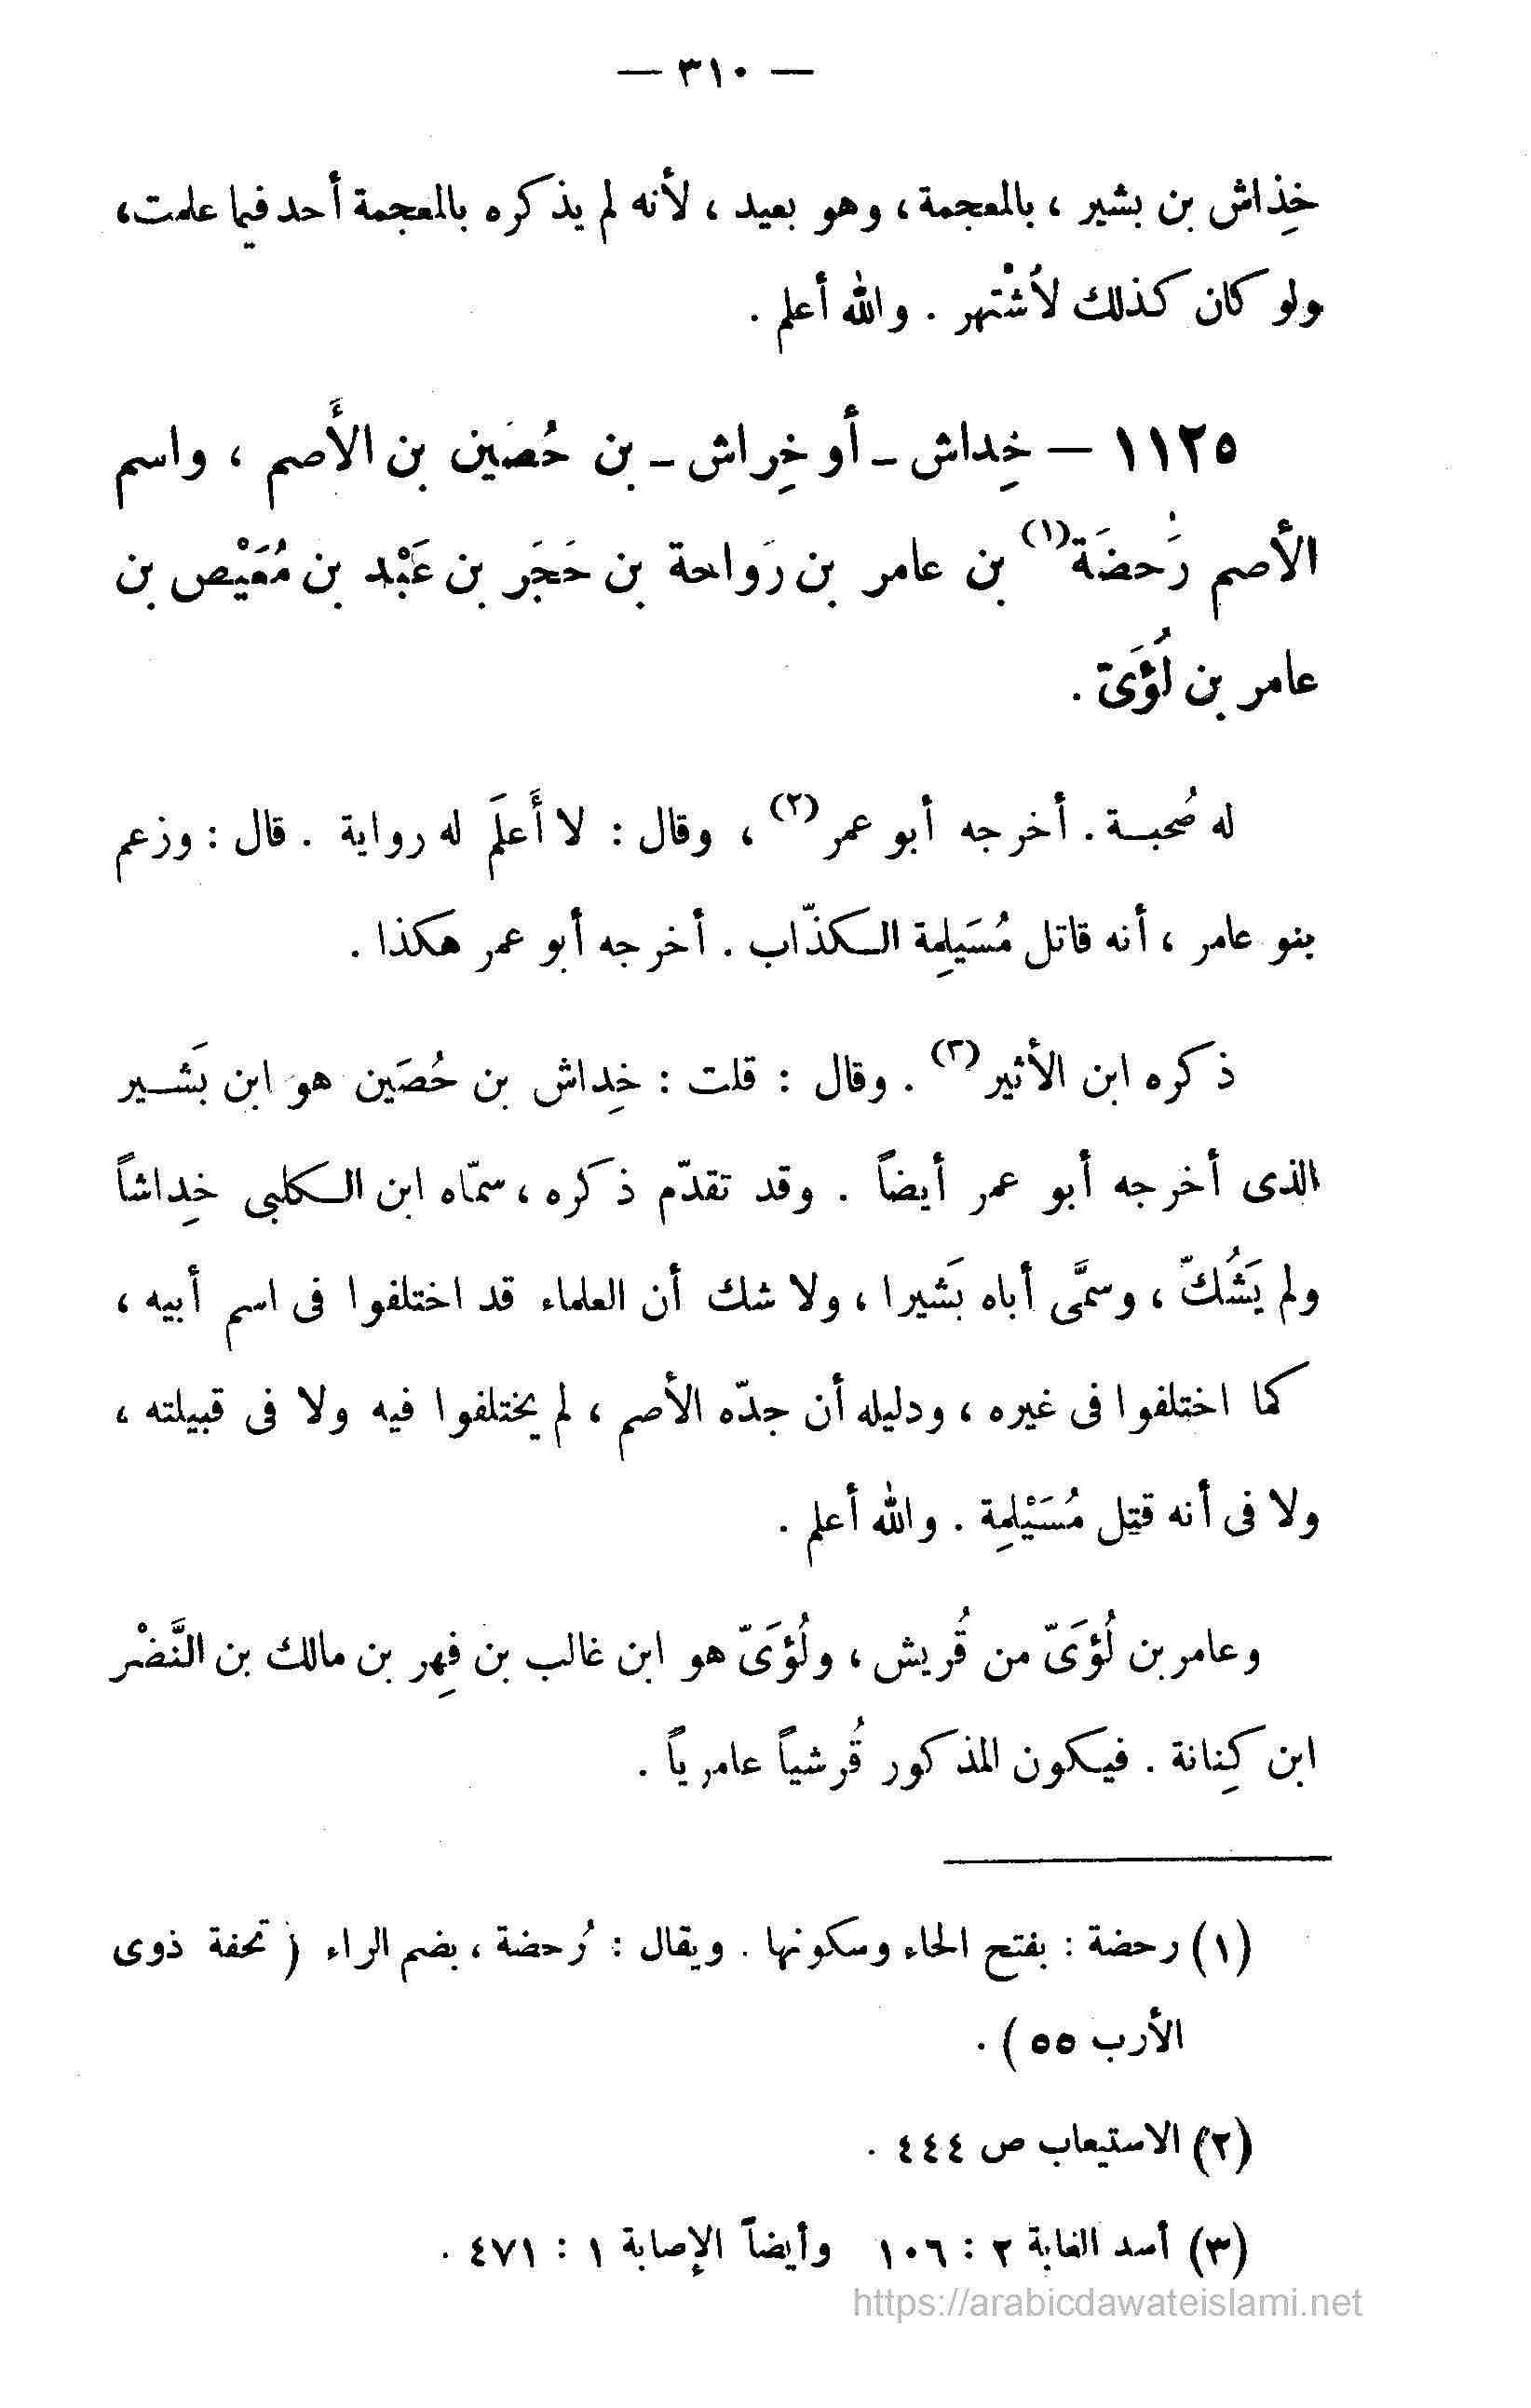 — ٣١٠ —
خِذاش بن بشير ، بالمعجمة ، وهو بعيد ، لأنه لم يذكره بالمعجمة أحد فيما علمت ،
ولو كان كذلك لاُشْتهر . والله أعلم .
١١٢٥ — خِداش ـ أو خِراش ـ بن حُصَين بن الأَصم ، واسم
الأصم رَُحضَة(١) بن عامر بن رَواحة بن حَجَر بن عَبْد بن مُعَيْص بن
عامر بن لُؤَىّ .
له صُحبـة . أخرجه أبو عمر(٢) ، وقال : لا أَعلَم له رواية . قال : وزعم
بنو عامر ، أنه قاتل مُسَيلِمة الـكذّاب . أخرجه أبو عمر هكذا .
ذكره ابن الأثير(٣) . وقال : قلت : خِداش بن حُصَين هو ابن بَشـير
الذى أخرجه أبو عمر أيضاً . وقد تقدّم ذكره ، سمّاه ابن الـكلبى خِداشاً
ولم يَشُكّ ، وسمَّى أباه بَشيرا ، ولا شك أن العلماء قد اختلفوا فى اسم أبيه ،
كما اختلفوا فى غيره ، ودليله أن جدّه الأصم ، لم يختلفوا فيه ولا فى قبيلته ،
ولا فى أنه قتِل مُسَيْلِمة . والله أعلم .
وعامر بن لُؤَىّ من قُريش ، ولُؤَىّ هو ابن غالب بن فِهر بن مالك بن النَّضْر
ابن كِنانة . فيـكون المذكور قُرشياً عامرياً .
(١) رحضة : بفتح الحاء وسكونها . ويقال : رُحضة ، بضم الراء ( تحفة ذوى
الأرب ٥٥ ) .
(٢) الاستيعاب ص ٤٤٤ .
(٣) أسد الغابة ٢ : ١٠٦ وأيضاً الإصابة ١ : ٤٧١ .
https://arabicdawateislami.net